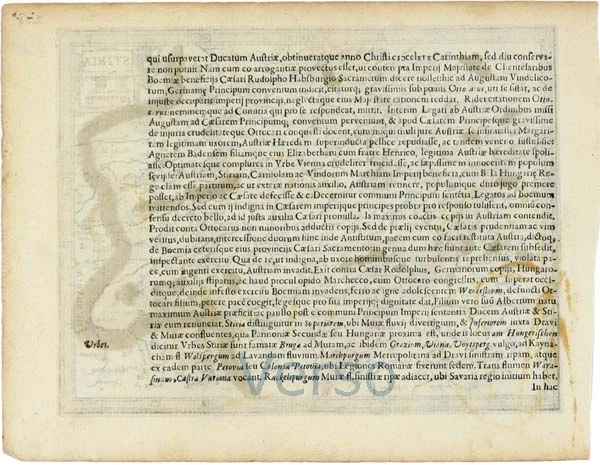 qui usurpaverat Ducatum Austriæ, obtinueratque anno Christi Carinthiam, sed diu conservare
non potuit. Nam cum eo arrogantiæ provectus esset, ut contempta Imperij Majestate de Clientelaribus
Boemiæ beneficijs Cæsari Rudolpho Habspurgio Sacramentum dicere nollet, hic ad Augustam Vindelicorum,
Germaniæ Principum conventum indicit, citaturq; gravissimis sub pœnis Ottocarus, uti se sistat, ac de
injuste occupatis imperij provincijs, neglectaque ejus Majestate rationem reddat. Ridet citationem Ottocarus,
neminemque ad Comitia qui pro se respondeat, mittit. Interim Legati ab Austriæ Ordinibus missi
Augustam ad Cæsarem Principumq; conventum perveniunt, & apud Cæsarem Principesque gravissime
de injuria crudelitateque Ottocari conquesti docent, eum iniquo tituli jure Austriæ se insinuasse: Margaritam
legitimam uxorem, Austriæ Hæredem superinducta pellice repudiasse, ac tandem veneno sustulisse:
Agnetem Badensem filiamque ejus Elizabetham cum fratre Henrico, legitima Austriæ hæreditate spoliasse.
Optimates complures in Urbe Vienna crudeliter trucidasse, ac sæpissime in innocentem populum
sævijsse. Austriam, Stiriam, Carniolam ac Vindorum Marchiam Imperij beneficia, cum B. Hungariæ Rege
clam esse partitum, ac ut exteræ nationis auxilio, Austriam retinere, populumque duro jugo premere
posset, ab Imperio ac Cæsare defecisse &c. Decernitur communi Principum sententia, Legatos ad boemum
mittendos. Sed cum ij indigna in Cæsarem imperijque principes probra pro responso tulissent, omnium
consensu decreto bello, ad id justa auxilia Cæsari promissa. Is maximis coactis copijs in Austriam contendit.
Prodit contra Ottocarus non minoribus adductis copijs. Sed de prælij eventu, Cæsaris prudentiam ac vim
veritus, dubitans, intercessione duorum hinc inde Antistitum, pacem cum eo facit restituta Austria; dictoq;
de Boemia ceterisque ejus provincijs Cæsari Sacramento in genua dum hæc fiunt ante Cæsarem subsedit,
inspectante exercitu. Qua de re, ut indigna, ab uxore hominibusque turbulentis reprehensus, violata pace,
cum ingenti exercitu, Austriam invadit. Exit contra Cæsar Rodolphus, Germanorum copijs, Hungarorumq;
auxilijs stipatus, ac haud procul opido Marchecco, cum Ottocaro congressus, eum superat occiditque,
deinde infesto exercitu Boemiam invadens, ferro ac igne adolescentem Wenceslaum, defuncti Ottocari
filium, petere pacē coegit, legesque pro sita imperijq; dignitate dat. Filium vero suū Albertum natu
maximum Austriæ præficit ac paulo post e communi Principum Imperij sententia Ducem Austriæ & Stiriæ
eum renunciat. Stiria distinguitur in superiorem, ubi Mura fluvij divertigium, & Inferiorem juxta Dravi
& Muræ confluentes, qua Pannoniæ Secundæ seu Hungariæ proxima est, unde is locus am Hungerischen
Urbes. dicitur. Urbes Stiriæ sunt famatæ Bruga ad Muram, ac ibidem Grazium, Viana, Voytsperg vulgo, ad Kaynacham
fl. Walsperg um ad Lavandum fluvium. Marchpurgum Metropolitana ad Dravi sinistram ripam, atque
ex eadem parte Petovia seu Colonia Petovia, ubi Legiones Romanæ fixerunt sedem. Trans flumen Warasinum,
Castra Variana vocant. Rackelspurgum Muræ fl. sinistræ ripæ adjacet, ubi Savaria regio initium habet.
In hac
Verso